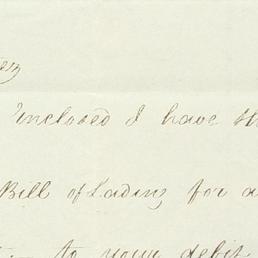 Inclosed I have
Bill of Lading for a
to your debit